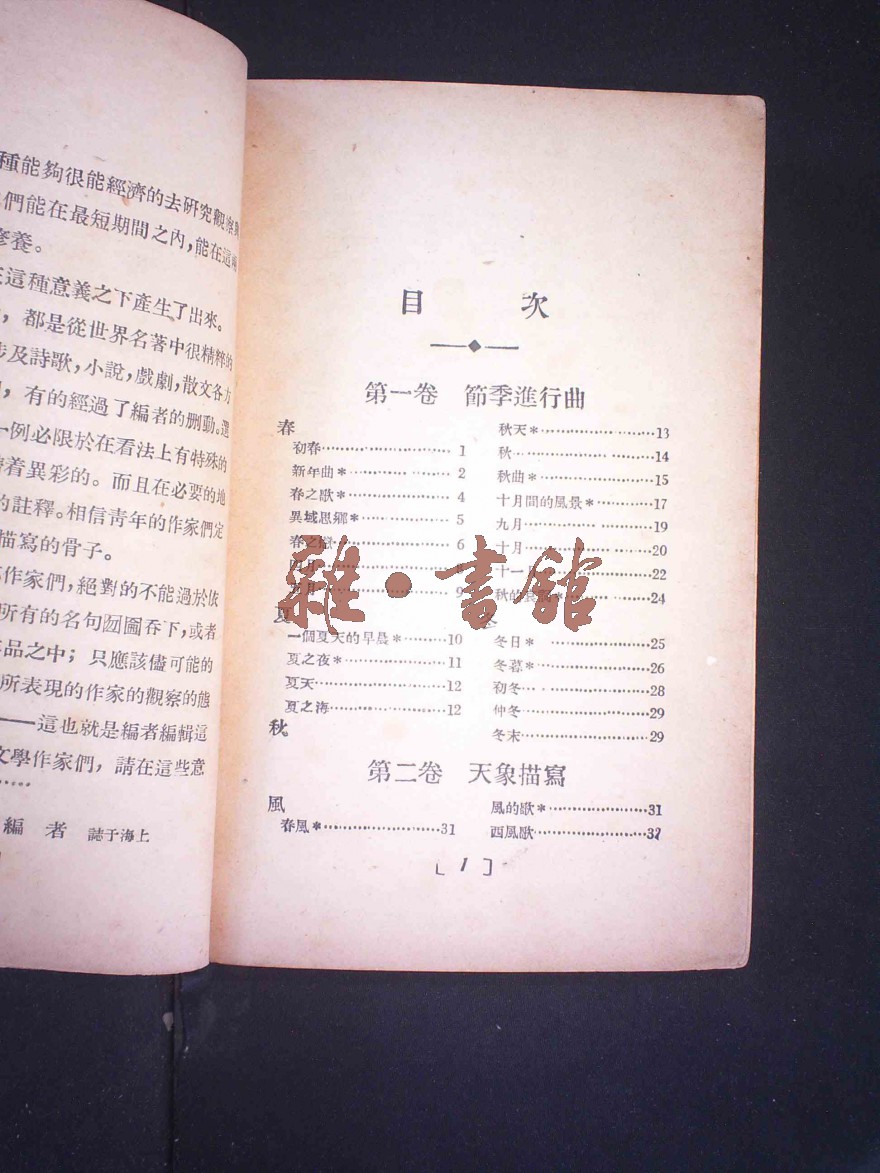 種能夠很能經濟的去研究觀察與
們能在最短期間之內,能在這兩
修養。
在這種意義之下產生了出來。
,都是從世界名著中很精粹的
涉及詩歌,小說,戲劇,散文各方
,有的經過了編者的刪動。選
一例必限於在看法上有特殊的
着異彩的。而且在必要的地
的註釋。相信靑年的作家們定
描寫的骨子。
作家們,絕對的不能過於依
所有的名句囫圇吞下,或者
品之中;只應該儘可能的
所表現的作家的觀察的態
——這也就是編者編輯這
文學作家們,請在這些意
……
編者 誌于海上
目 次
第一卷 節季進行曲
春
初春……1
新年曲*……2
春之歌*……4
異域思鄉*……5
春之……6
四月
月……9
夏
一個夏天的早晨*……10
夏之夜*……11
夏天……12
夏之海……12
秋
秋天*……13
秋……14
秋曲*……15
十月間的風景*……17
九月……19
十月……20
十一月……22
秋的……24
冬
冬日*……25
冬暮*……26
初冬……28
仲冬……29
冬末……29
第二卷 天象描寫
風
春風*……31
風的歌*……31
西風歌……32
[1]
雜·書館